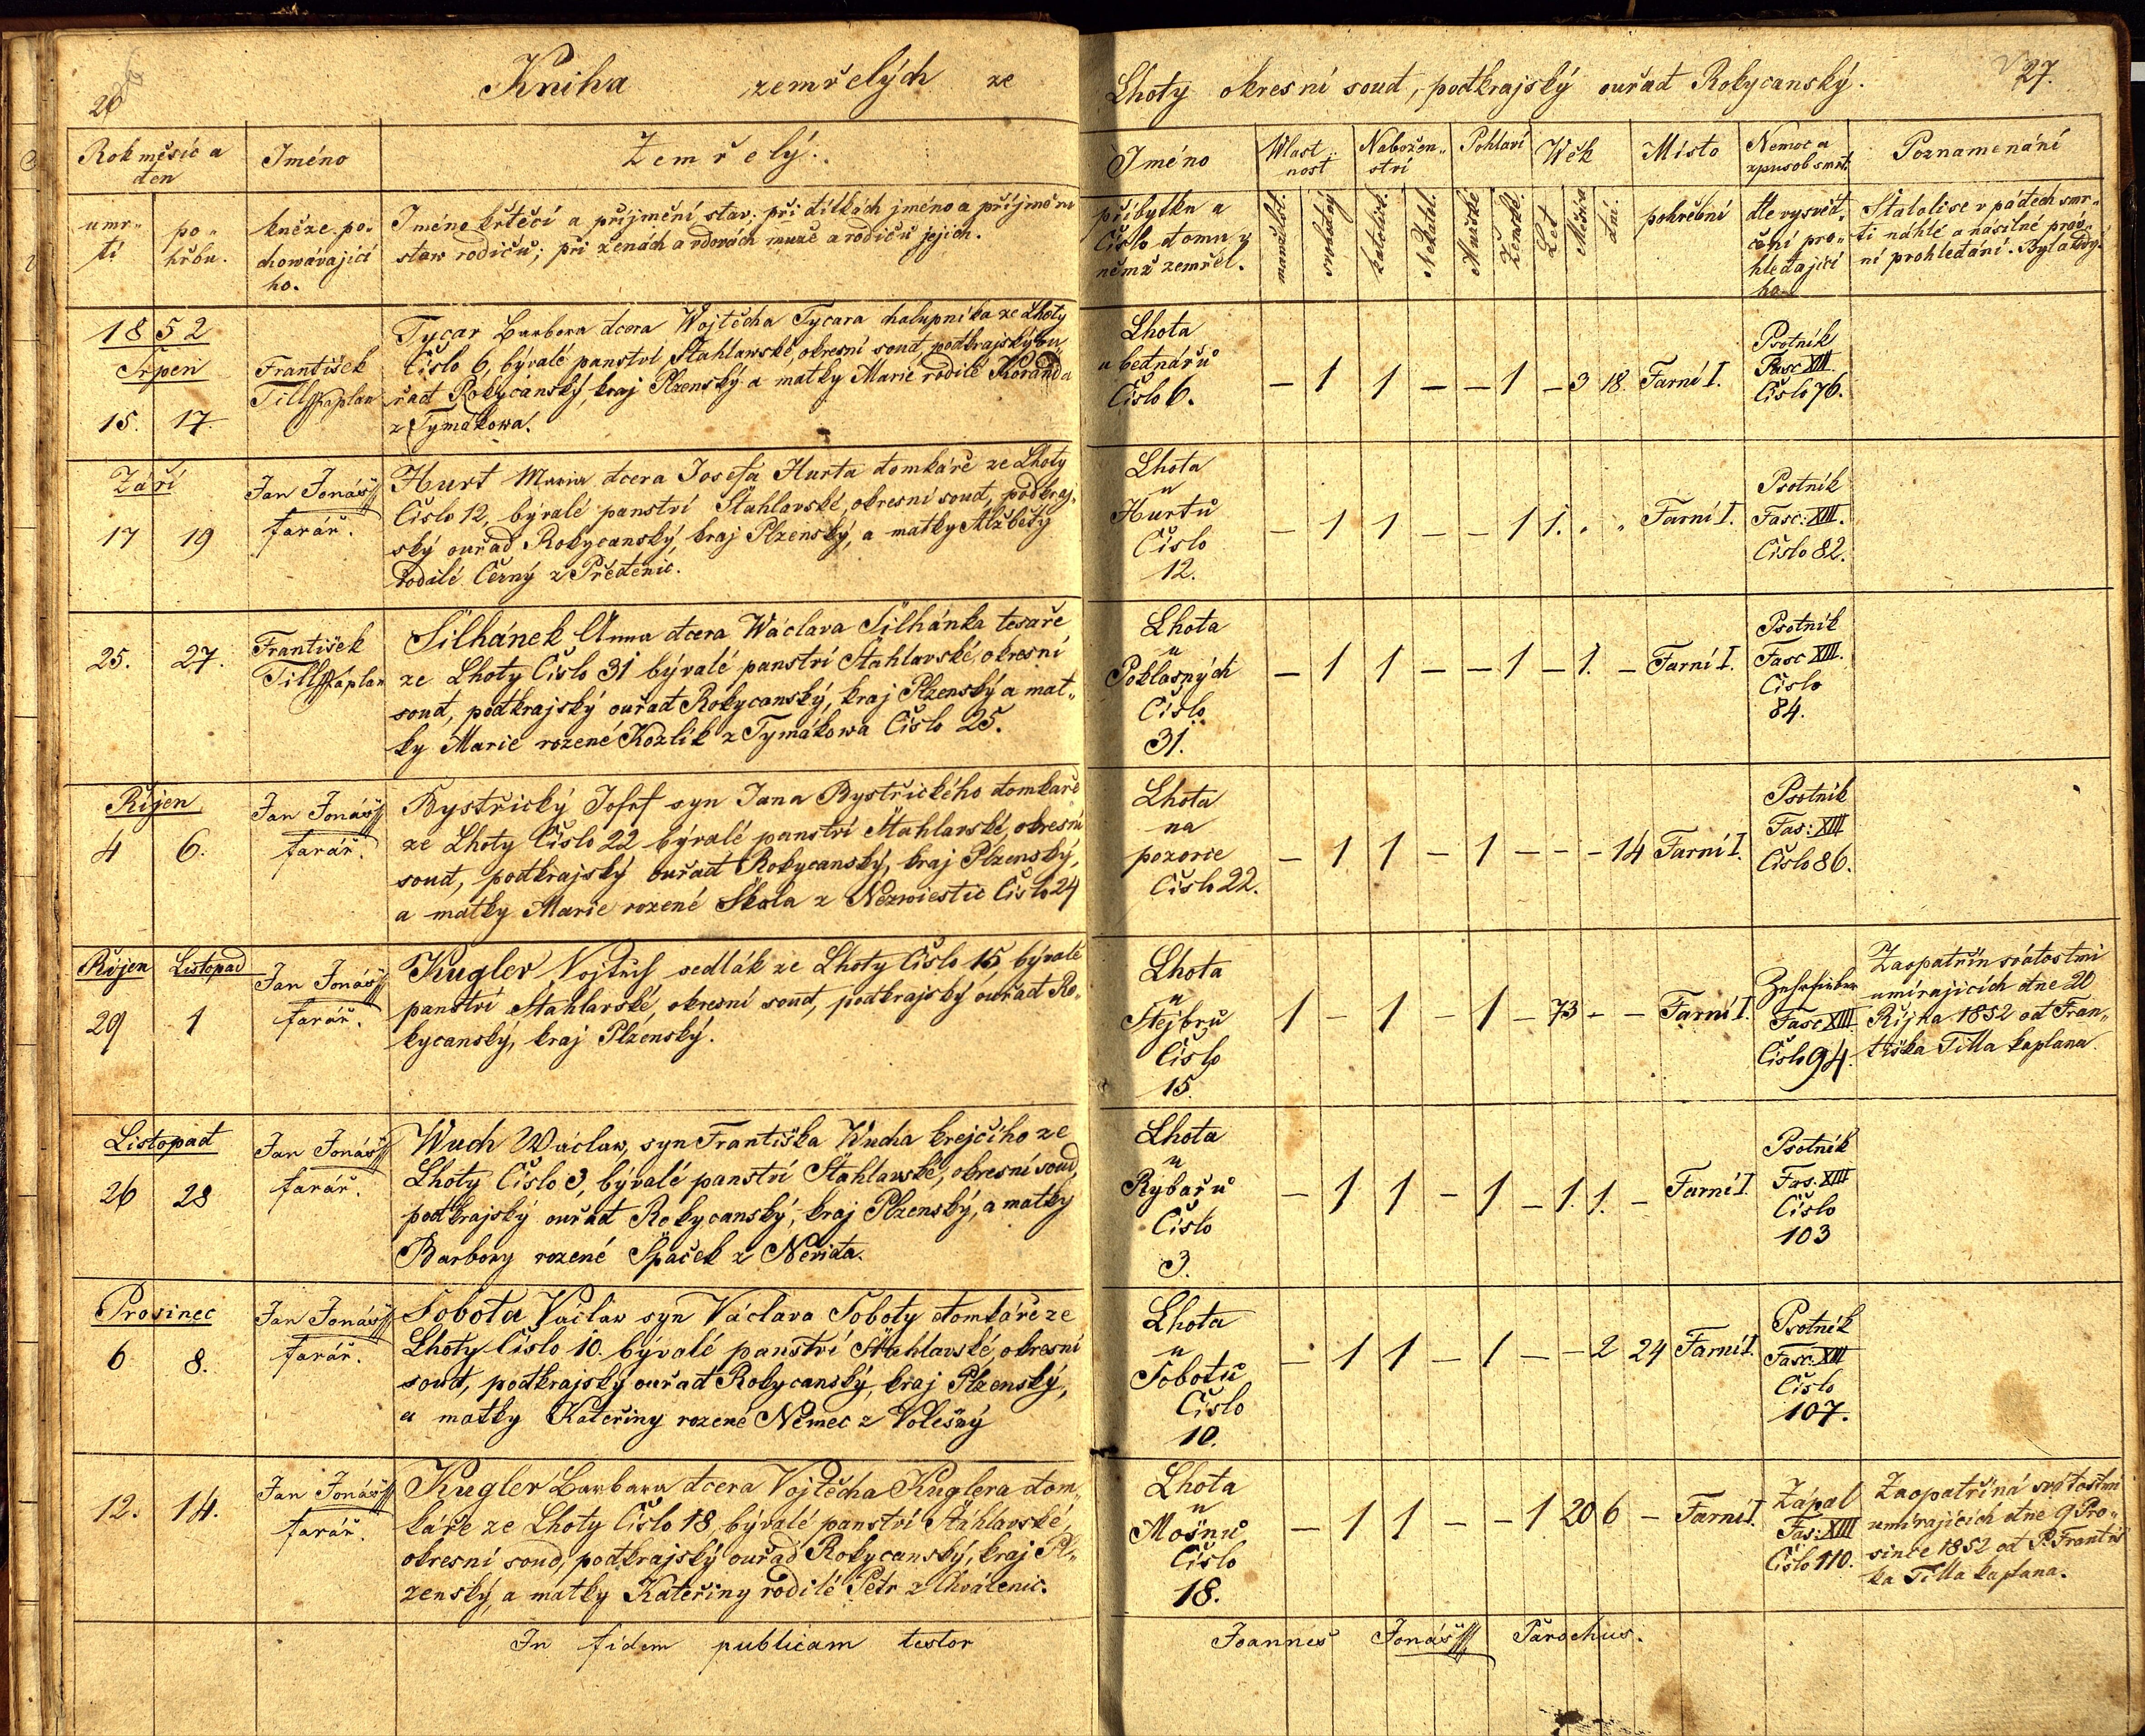 26
Kniha zemřelých ze
Rok měsíc a
den
Jméno
Zemřelý.
umr„
tí
po„
hřbu.
kněze po„
chowávající
ho.
Jméno křtěcí a příjmění stav; při dítkách jméno a příjmění
stav rodičů; při ženách a vdovách muže a rodičů jejich.
1852
Srpen
15. 17.
František
Till kaplan
Tycar Barbora dcera Wojtěcha Tycara chalupníka ze Lhoty
Číslo 6, bývalé panství Štahlawské, okresní soud, podkrajský ou„
řad Rokycanský, kraj Plzenský a matky Marie rodilé Koranda
z Tymakowa.
Září
17 19
Jan Jonáš
farář.
Hurt Maria dcera Josefa Hurta domkáře ze Lhoty
Číslo 12, bývalé panství Štahlavské, okresní soud, podkraj„
ský ouřad Rokycanský, kraj Plzenský, a matky Alžběty
rodilé Černý z Předenic.
25. 27.
František
Till kaplan
Šilhánek Anna dcera Wáclava Šilhánka tesaře
ze Lhoty Číslo 31 bývalé panství Štahlavské, okresní
soud, podkrajský ouřad Rokycanský, kraj Plzenský a mat„
ky Marie rozené Kozlík z Tymákowa Číslo 25.
Říjen
4 6.
Jan Jonáš
farář.
Bystřický Josef syn Jana Bystřického domkaře
ze Lhoty Číslo 22 bývalé panství Štahlavské, okresní
soud, podkrajský ouřad Rokycanský, kraj Plzenský,
a matky Marie rozené Škola z Nezwiestic Číslo 24
Říjen Listopad
29 1
Jan Jonáš
farář.
Kugler Vojtěch sedlák ze Lhoty Číslo 15, bývalé
panství Štahlavské, okresní soud, podkrajský ouřad Ro„
kycanský, kraj Plzenský.
Listopad
26 28
Jan Jonáš
farář.
Wuch Wáclaw, syn Františka Wucha krejčího ze
Lhoty Číslo 3, bývalé panství Štahlawské, okresní soud,
podkrajský ouřad Rokycanský, kraj Plzenský, a matky
Barbory rozené Špaček z Neřida.
Prosinec
6 8.
Jan Jonáš
farář.
Sobota Václaw syn Václava Soboty domkáře ze
Lhoty Číslo 10. bývalé panství Štahlavské, okresní
soud, podkrajský ouřad Rokycanský, kraj Plzenský,
a matky Kateřiny rozené Němec z Volešný
12. 14.
Jan Jonáš
farář.
Kugler Barbara dcera Vojtěcha Kuglera dom„
káře ze Lhoty Číslo 18, bývalé panství Štáhlavské,
okresní soud, podkrajský ouřad Rokycanský, kraj Pl„
zenský, a matky Kateřiny rodilé Petr z Chválenic.
In fidem publicam testor
Lhoty okresní soud, podkrajský ouřad Rokycanský.
27.
Jméno
Wlast„
nost
Nabožen„
ství
Pohlaví
Wěk
Místo
Nemoc a
zpusob smrt.
Poznamenání
příbytku a
Číslo domu v
němž zemřél.
manželst.
svobodný
katolick.
Nekatol.
Mužské
Ženské.
Let
Měsíců
dní.
pohřební
dle vysvěd„
čení pro„
hledající
ho
Stalolise v pádech smr„
ti náhlé a násilné práv„
ní prohledání. Byla
Lhota
u bednářů
Číslo 6.
– 1 1 – – 1 – 3 18. Farní I.
Psotník
Fasc XIII.
Číslo 76.
Lhota
u
Hurtů
Číslo
12.
– 1 1 – – 1 1. . „ Farní I.
Psotník
Fasc: XIII.
Číslo 82.
Lhota
u
Poklasných
Číslo
31.
– 1 1 – – 1 – 1. – Farní I.
Psotník
Fasc XIII.
Číslo
84.
Lhota
na
pozorie
Číslo 22.
– 1 1 – 1 – – – 14 Farní I.
Psotník
Fas: XIII
Číslo 86.
Lhota
u
Štejbrů
Číslo
15.
1 – 1 – 1 – 73 – – Farní I.
Fasc XIII
Číslo 94.
Zaopatřín svátostmi
umírajících dne 20
Října 1852 od Fran„
tiška Tilla kaplana.
Lhota
u
Rybařů
Číslo
3.
– 1 1 – 1 – 1. 1. – Farní I.
Psotník
Fas. XIII
Číslo
103
Lhota
u
Sobotů
Číslo
10.
– 1 1 – 1 – – 2 24 Farní I.
Psotník
Fasc: XIII
Číslo
107.
Lhota
u
Mošnů
Číslo
18.
– 1 1 – – 1 20 6 – Farní I.
Zápal
Fas: XIII
Číslo 110.
Zaopatřiná svátostmi
umírajících dne 9 Pro„
since 1852 od P. Františ
ka Tilla kaplana.
Joannes Jonáš Parochus.